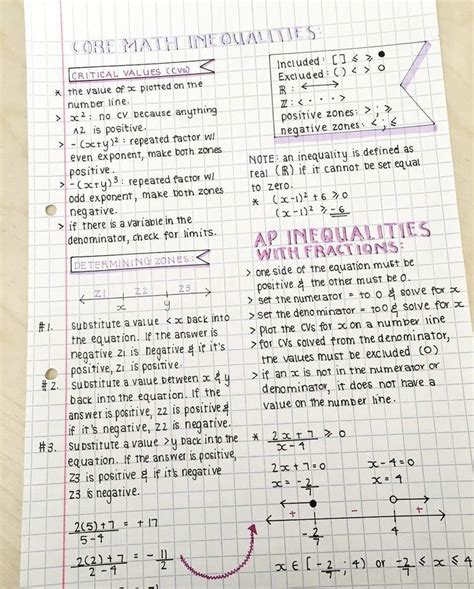 CORE MATH INEQUALITIES:
CRITICAL VALUES (CVs)
* the value of x plotted on the
number line.
> x²: no CV because anything
^2 is positive.
> -(x+y)²: repeated factor w/
even exponent, make both zones
positive.
> -(x+y)³: repeated factor w/
odd exponent, make both zones
negative.
> if there is a variable in the
denominator, check for limits.
DETERMINING ZONES:
Z1 Z2 Z3
x y
#1. Substitute a value < x back into
the equation. If the answer is
negative Z1 is negative & if it's
positive, Z1 is positive.
#2. Substitute a value between x & y
back into the equation. If the
answer is positive, Z2 is positive &
if it's negative, Z2 is negative.
#3. Substitute a value > y back into the
equation. If the answer is positive,
Z3 is positive & if it's negative
Z3 is negative.
2(5)+7 = +17
5-4
2(2)+7 = -11
2-4 2
Included: [ ] ≤ ≥ ●
Excluded: ( ) < > ○
ℝ: ↔
ℤ: < · · · >
positive zones: > ; ≥
negative zones: < ; ≤
NOTE: an inequality is defined as
real (ℝ) if it cannot be set equal
to zero.
* (x-1)² + 6 ≥ 0
(x-1)² ≥ -6
AP INEQUALITIES
WITH FRACTIONS:
> one side of the equation must be
positive & the other must be 0.
> set the numerator = to 0 & solve for x
> set the denominator = to 0 & solve for x
> plot the CVs for x on a number line
> for CVs solved from the denominator,
the values must be excluded (O)
> if an x is not in the numerator or
denominator, it does not have a
value on the number line.
* 2x+7 ≥ 0
x-4
2x+7=0 x-4=0
x = -2/7 x = 4
+ - +
-2/7 4
x ∈ [-2/7 ; 4) or -2/7 ≤ x ≤ 4